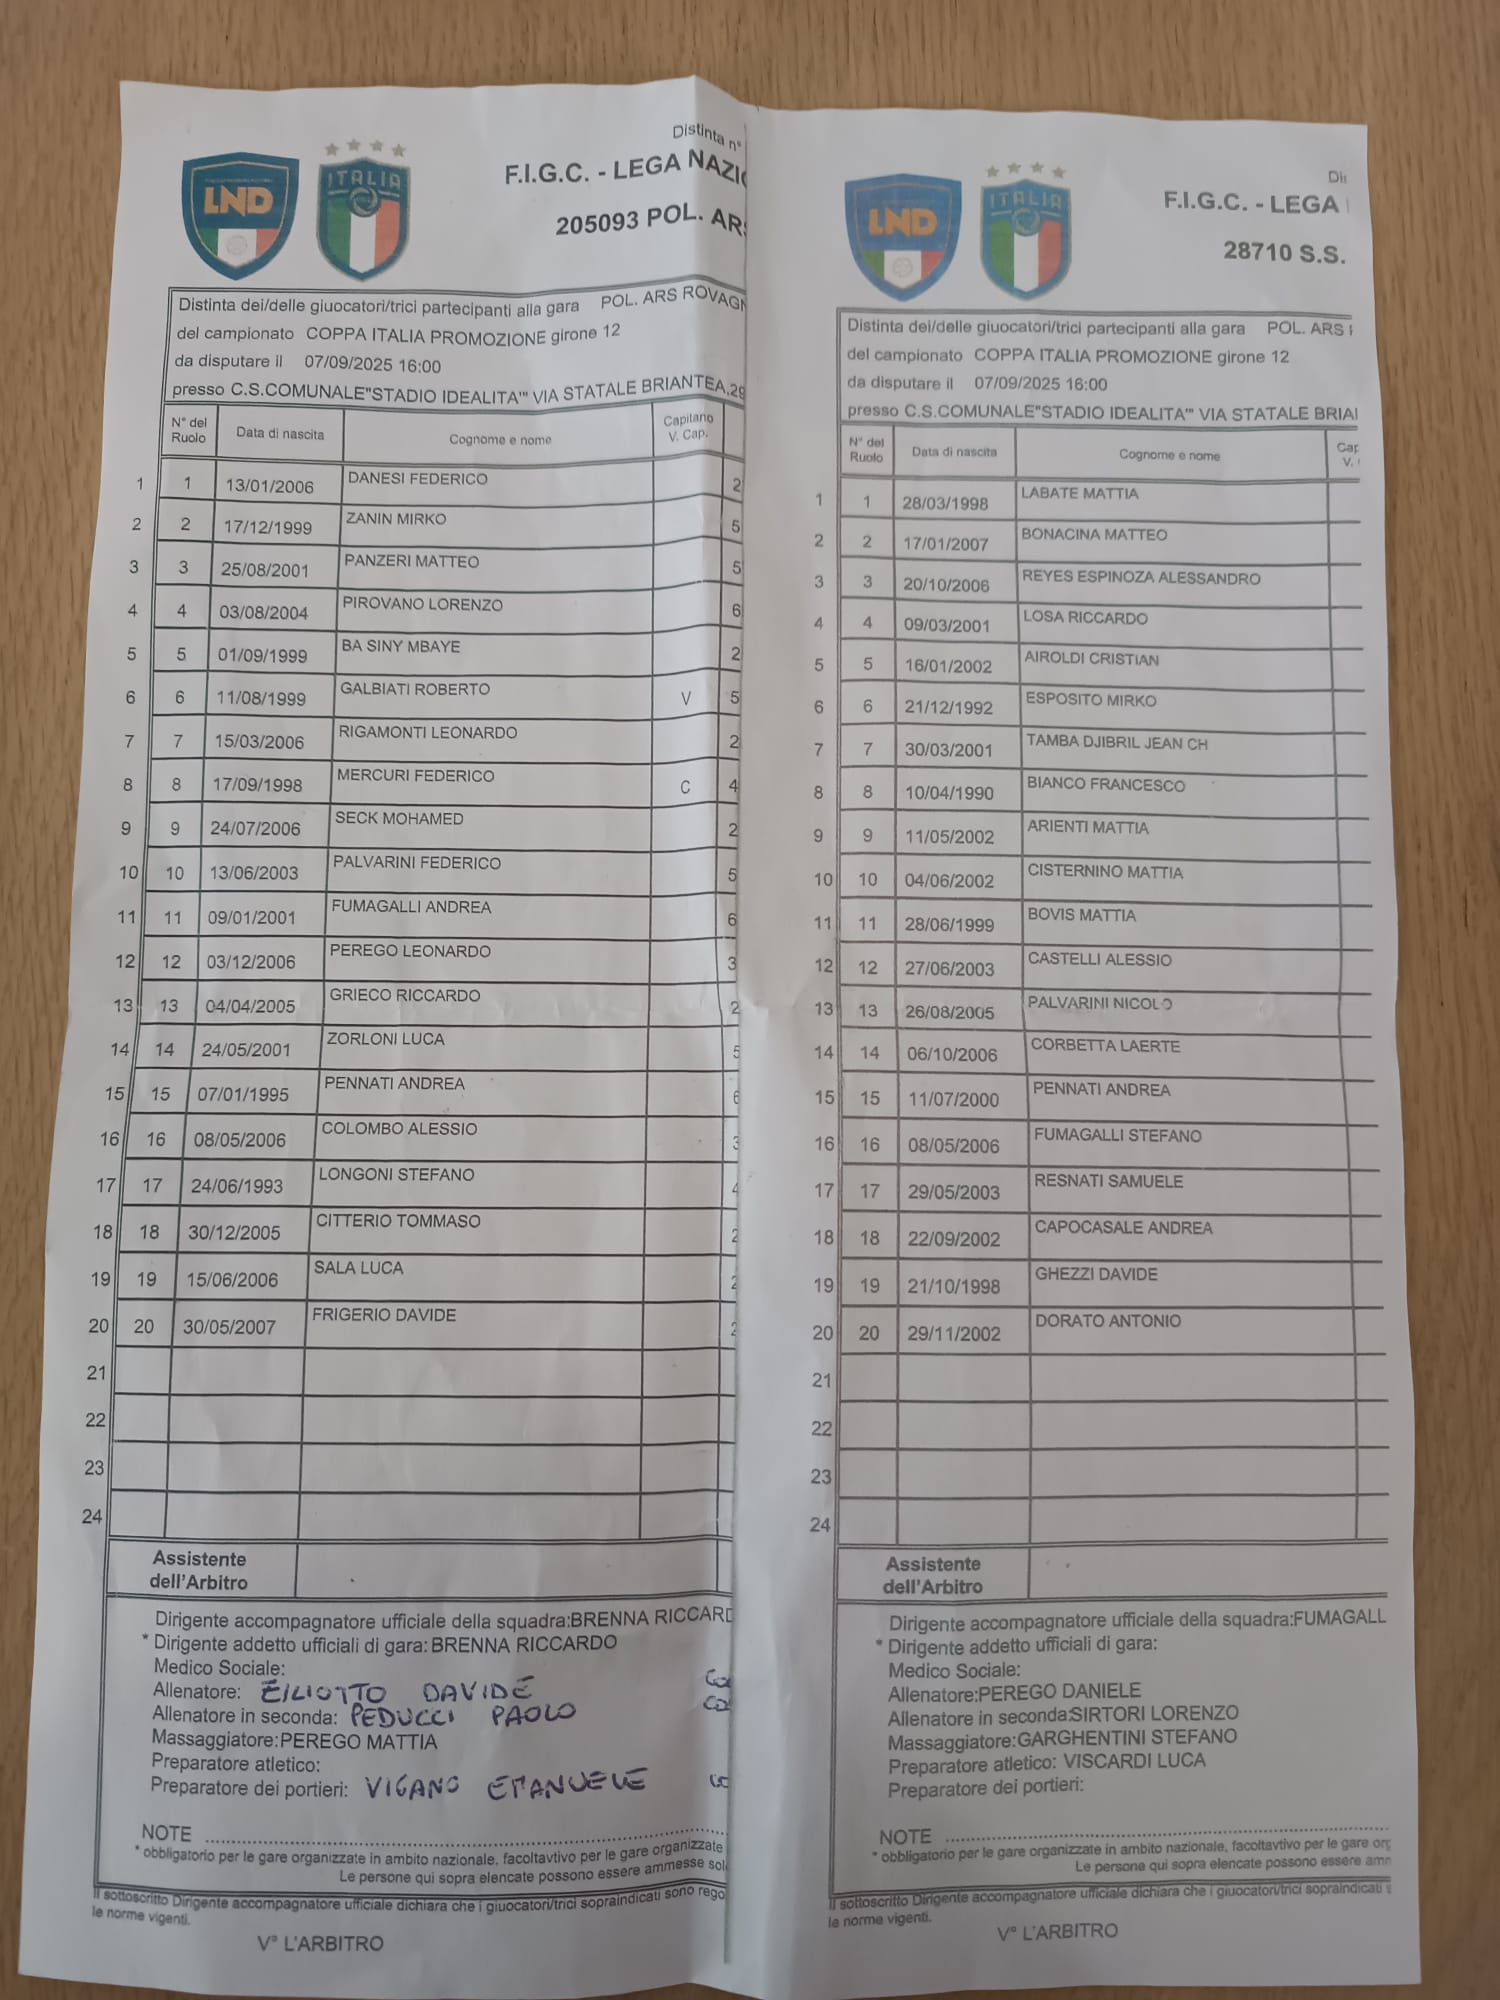 Distinta n°
LND
ITALIA
F.I.G.C. - LEGA NAZIO
205093 POL. ARS
Distinta dei/delle giuocatori/trici partecipanti alla gara POL. ARS ROVAGN
del campionato COPPA ITALIA PROMOZIONE girone 12
da disputare il 07/09/2025 16:00
presso C.S.COMUNALE"STADIO IDEALITA'" VIA STATALE BRIANTEA,29
N° del Ruolo Data di nascita Cognome e nome Capitano V. Cap.
1 1 13/01/2006 DANESI FEDERICO 2
2 2 17/12/1999 ZANIN MIRKO 5
3 3 25/08/2001 PANZERI MATTEO 5
4 4 03/08/2004 PIROVANO LORENZO 6
5 5 01/09/1999 BA SINY MBAYE 2
6 6 11/08/1999 GALBIATI ROBERTO V 5
7 7 15/03/2006 RIGAMONTI LEONARDO 2
8 8 17/09/1998 MERCURI FEDERICO C 4
9 9 24/07/2006 SECK MOHAMED 2
10 10 13/06/2003 PALVARINI FEDERICO 5
11 11 09/01/2001 FUMAGALLI ANDREA 6
12 12 03/12/2006 PEREGO LEONARDO 3
13 13 04/04/2005 GRIECO RICCARDO 2
14 14 24/05/2001 ZORLONI LUCA 5
15 15 07/01/1995 PENNATI ANDREA 6
16 16 08/05/2006 COLOMBO ALESSIO 3
17 17 24/06/1993 LONGONI STEFANO 4
18 18 30/12/2005 CITTERIO TOMMASO 2
19 19 15/06/2006 SALA LUCA 2
20 20 30/05/2007 FRIGERIO DAVIDE 2
21
22
23
24
Assistente dell'Arbitro
Dirigente accompagnatore ufficiale della squadra:BRENNA RICCARD
* Dirigente addetto ufficiali di gara: BRENNA RICCARDO
Medico Sociale:
Allenatore: ZILIOTTO DAVIDE
Allenatore in seconda: PEDUCCI PAOLO
Massaggiatore:PEREGO MATTIA
Preparatore atletico:
Preparatore dei portieri: VIGANO EMANUELE
NOTE
* obbligatorio per le gare organizzate in ambito nazionale, facoltavtivo per le gare organizzate
Le persone qui sopra elencate possono essere ammesse sol
Il sottoscritto Dirigente accompagnatore ufficiale dichiara che i giuocatori/trici sopraindicati sono rego
le norme vigenti.
V° L'ARBITRO
Dis
LND
ITALIA
F.I.G.C. - LEGA
28710 S.S.
Distinta dei/delle giuocatori/trici partecipanti alla gara POL. ARS
del campionato COPPA ITALIA PROMOZIONE girone 12
da disputare il 07/09/2025 16:00
presso C.S.COMUNALE"STADIO IDEALITA'" VIA STATALE BRIAN
N° del Ruolo Data di nascita Cognome e nome Cap V.
1 1 28/03/1998 LABATE MATTIA
2 2 17/01/2007 BONACINA MATTEO
3 3 20/10/2006 REYES ESPINOZA ALESSANDRO
4 4 09/03/2001 LOSA RICCARDO
5 5 16/01/2002 AIROLDI CRISTIAN
6 6 21/12/1992 ESPOSITO MIRKO
7 7 30/03/2001 TAMBA DJIBRIL JEAN CH
8 8 10/04/1990 BIANCO FRANCESCO
9 9 11/05/2002 ARIENTI MATTIA
10 10 04/06/2002 CISTERNINO MATTIA
11 11 28/06/1999 BOVIS MATTIA
12 12 27/06/2003 CASTELLI ALESSIO
13 13 26/08/2005 PALVARINI NICOLO
14 14 06/10/2006 CORBETTA LAERTE
15 15 11/07/2000 PENNATI ANDREA
16 16 08/05/2006 FUMAGALLI STEFANO
17 17 29/05/2003 RESNATI SAMUELE
18 18 22/09/2002 CAPOCASALE ANDREA
19 19 21/10/1998 GHEZZI DAVIDE
20 20 29/11/2002 DORATO ANTONIO
21
22
23
24
Assistente dell'Arbitro
Dirigente accompagnatore ufficiale della squadra:FUMAGALL
* Dirigente addetto ufficiali di gara:
Medico Sociale:
Allenatore:PEREGO DANIELE
Allenatore in seconda:SIRTORI LORENZO
Massaggiatore:GARGHENTINI STEFANO
Preparatore atletico: VISCARDI LUCA
Preparatore dei portieri:
NOTE
* obbligatorio per le gare organizzate in ambito nazionale, facoltavtivo per le gare org
Le persone qui sopra elencate possono essere amm
Il sottoscritto Dirigente accompagnatore ufficiale dichiara che i giuocatori/trici sopraindicati s
le norme vigenti.
V° L'ARBITRO